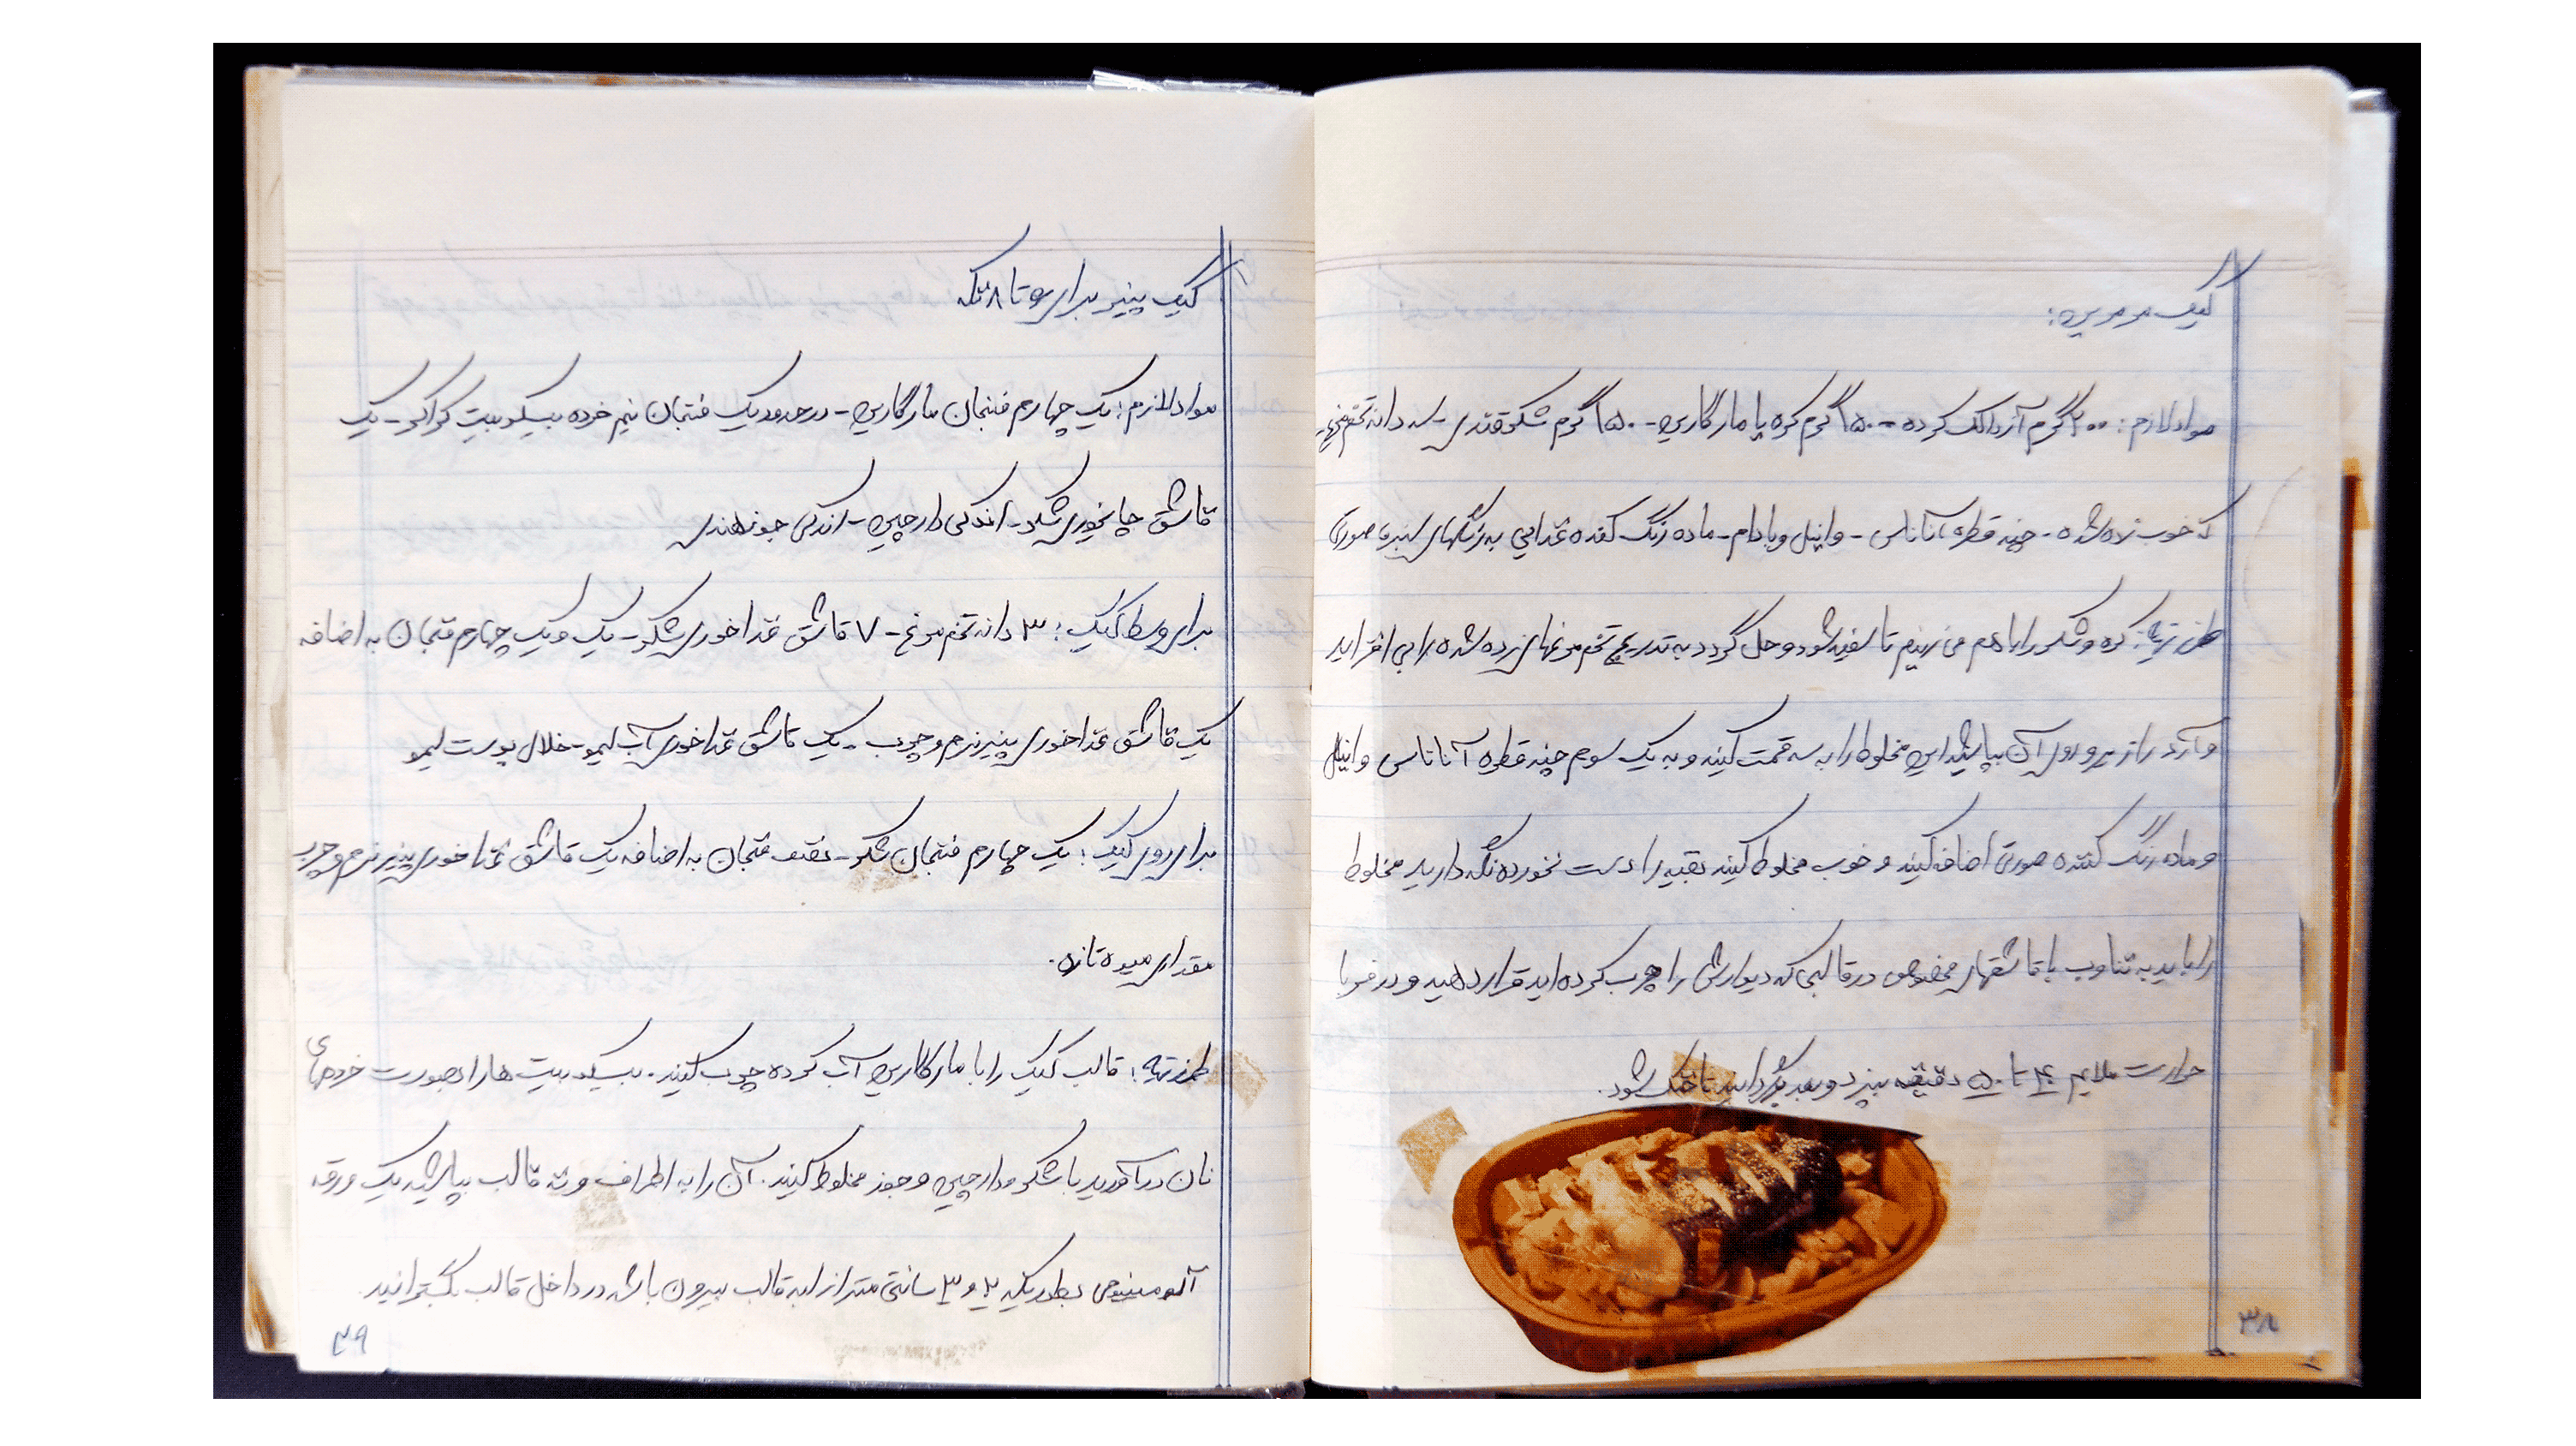 کیک مرمرین:
مواد لازم: ۲۰۰ گرم آرد الک کرده - ۱۵۰ گرم کره یا مارگارین - ۱۵۰ گرم شکر قندی - سه دانه تخم مرغهای
که خوب زده شده - چند قطره آناناس - وانیل و بادام - ماده رنگ کننده غذایی به رنگهای سبز و صورتی
طرز تهیه: کره و شکر را با هم می زنیم تا سفید شود و حل گردد به تدریج تخم مرغهای زده شده را بی افزاید
و آرد را نیز برو روی آن بپاشید این مخلوط را به سه قسمت کنید و به یک سوم چند قطره آناناس وانیل
و ماده رنگ کننده صورتی اضافه کنید و خوب مخلوط کنید بقیه را دست نخورده نگه دارید مخلوط
را باید به تناوب با قاشقهای مخصوص در قالبی که دیوارش را چرب کرده اید قرار دهید و در فر با
حرارت ملایم ۴۰ تا ۵۰ دقیقه بپزد و بعد بگردانید تا خنک شود.
۳۸
کیک پنیر برای ۶ تا ۸ تکه
مواد لازم: یک چهارم فنجان مارگارین - در حدود یک فنجان نیم خرده بیسکویت کراکر - یک
قاشق چایخوری شکر - اندکی دارچین - اندکی جوز هندی
برای وسط کیک: ۳ دانه تخم مرغ - ۷ قاشق غذاخوری شکر - یک و یک چهارم فنجان به اضافه
یک قاشق غذاخوری پنیر نرم و چرب - یک قاشق غذاخوری آب لیمو - خلال پوست لیمو
برای روی کیک: یک چهارم فنجان شکر - نصف فنجان به اضافه یک قاشق غذاخوری پنیر نرم و چرب
مقداری میوه تازه.
طرز تهیه: قالب کیک را با مارگارین آب کرده چرب کنید. بیسکویت ها را بصورت خرده های
نان درآورید با شکر و دارچین و جوز مخلوط کنید. آن را به اطراف و ته قالب بپاشید یک ورقه
آلومینیومی بطوریکه ۲ و ۳ سانتی متر از لبه قالب بیرون باشد در داخل قالب بگسترانید.
۳۹